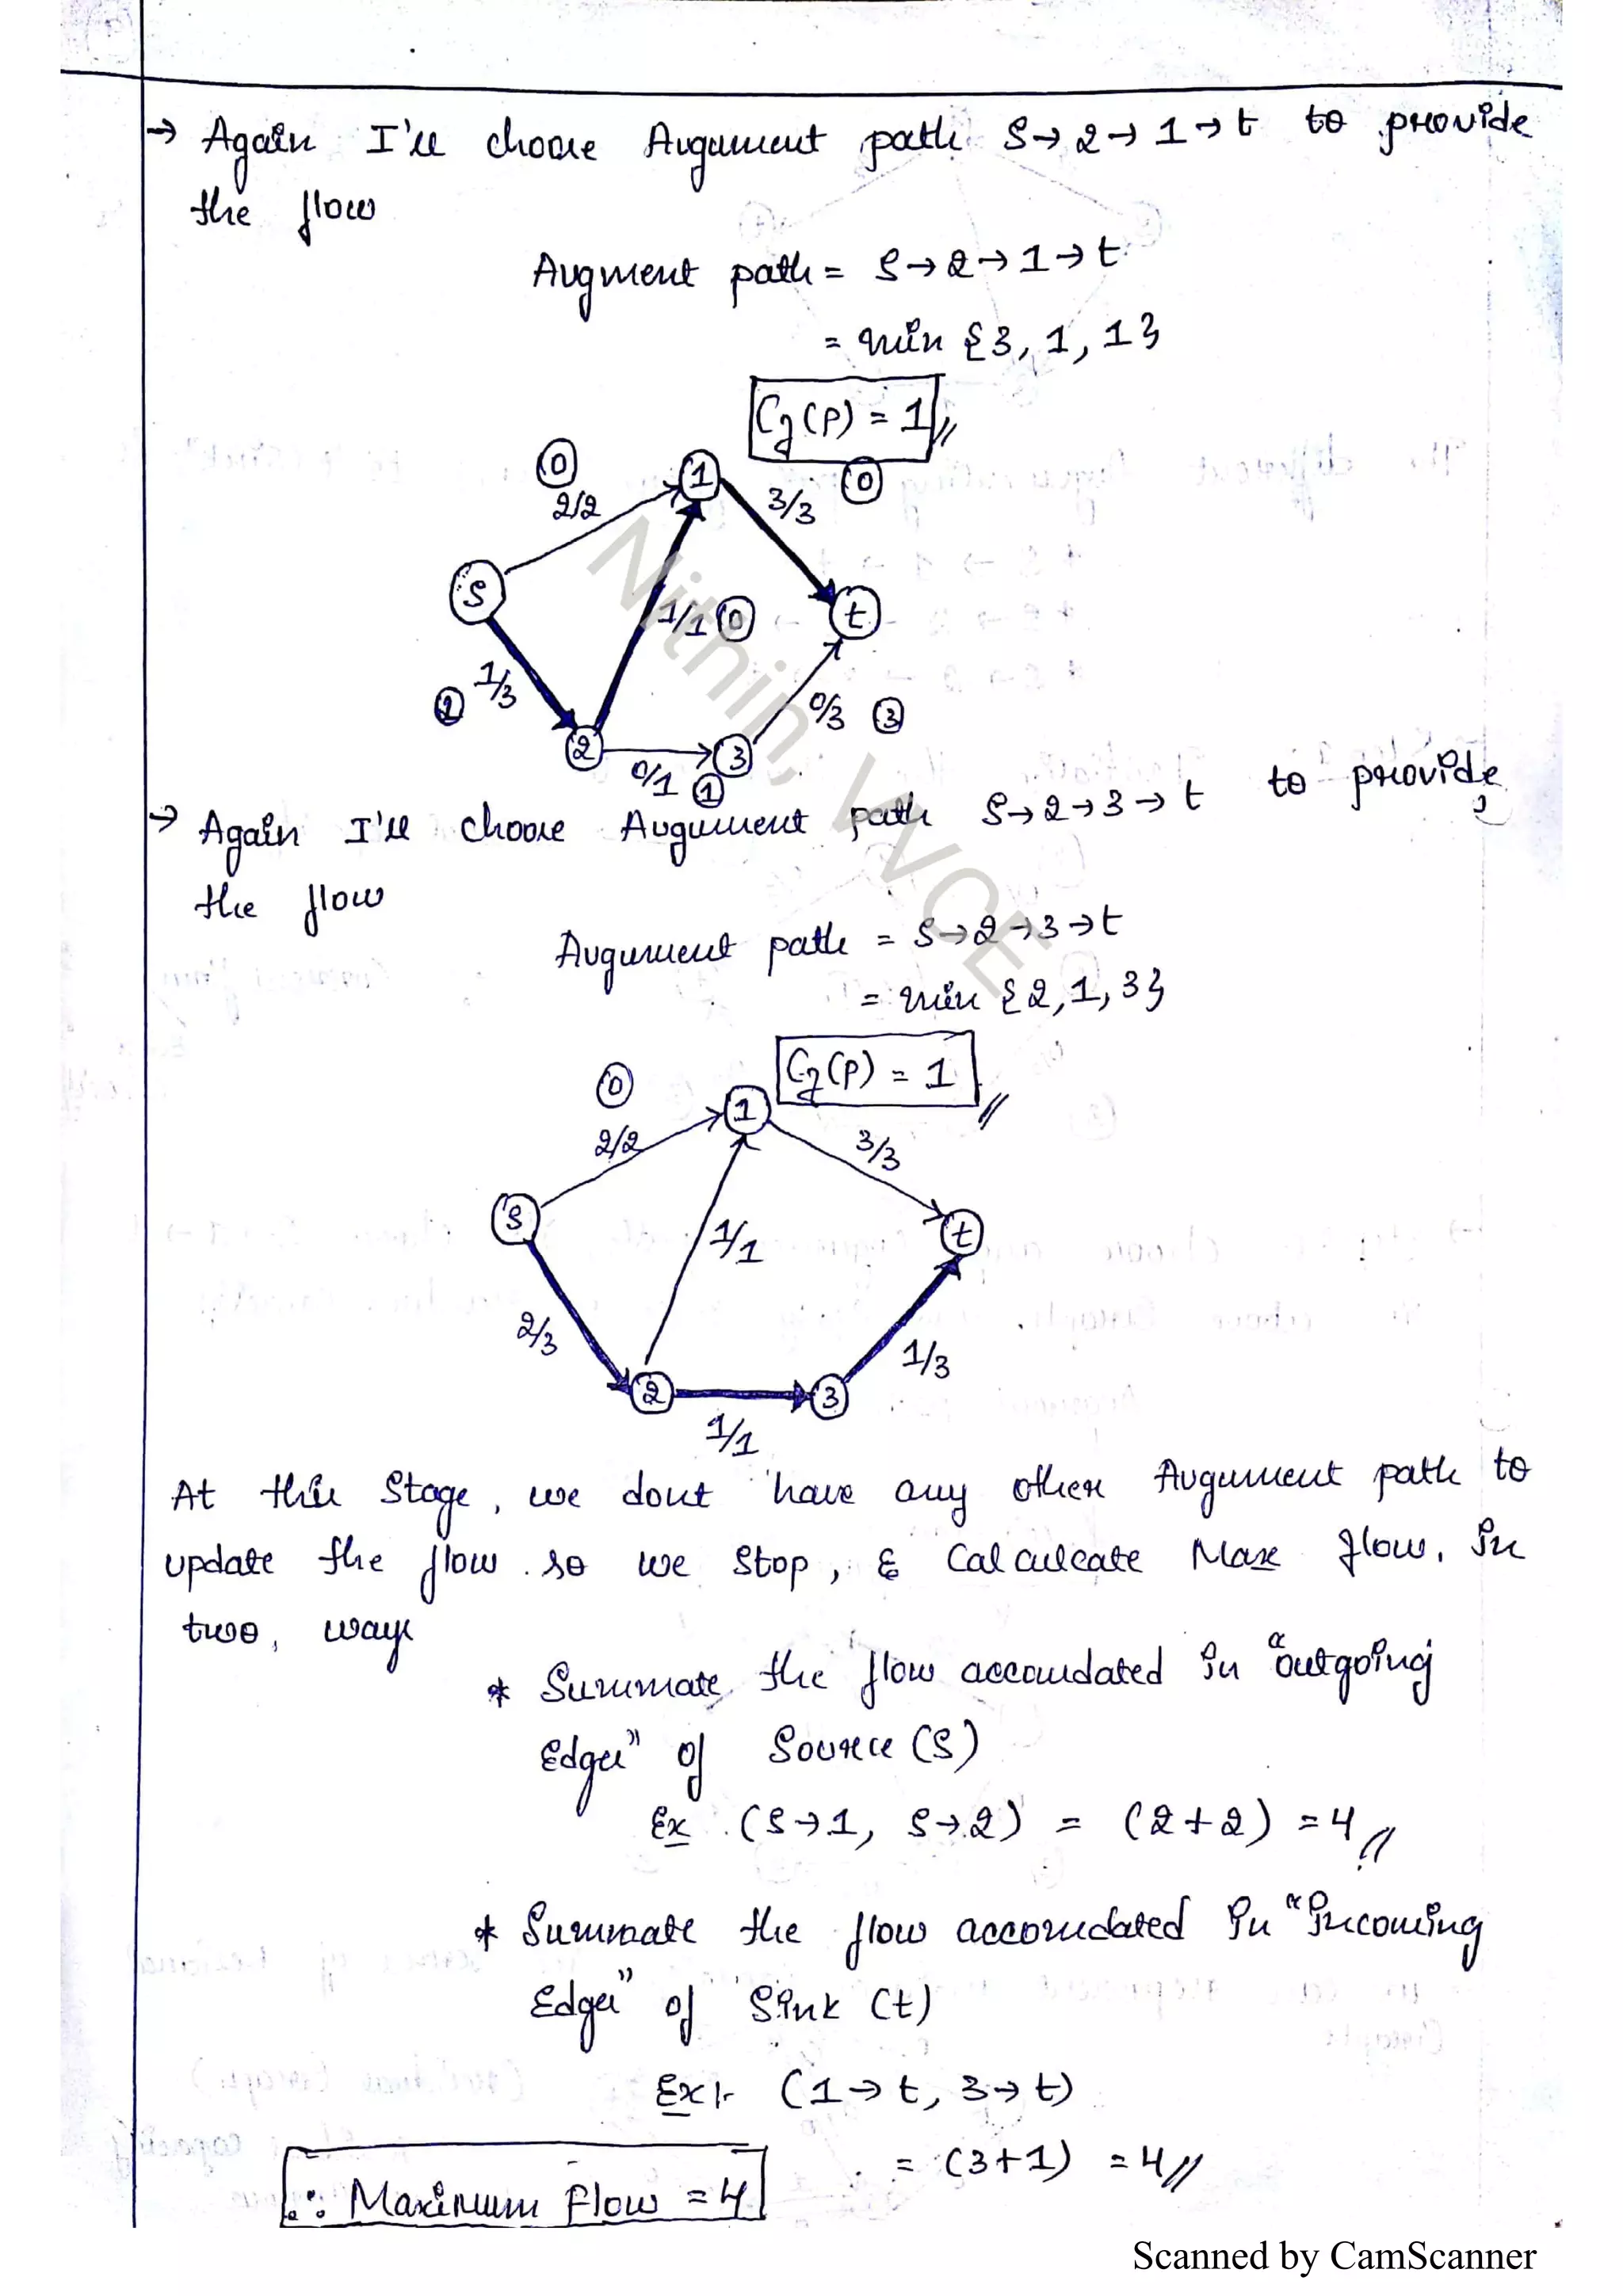 → Again I'll choose Augument path S→2→1→t to provide
the flow
Augment path = S→2→1→t
= min {3, 1, 1}
Cf(P) = 1//
0
2/2
1
3/3
0
S
1/1 0
t
2
1/3
2
0/1
1
3
0/3 3
→ Again I'll choose Augument path S→2→3→t to provide
the flow
Augument path = S→2→3→t
= min {2, 1, 3}
Cf(P) = 1 //
0
2/2
1
3/3
S
1/1
t
2/3
2
1/1
3
1/3
At this Stage, we dont have any other Augument path to
update the flow. so we stop, & Calculcate Max flow. in
two, ways
* Summate the flow accomdated in "outgoing
Edges" of Source (S)
Ex (S→1, S→2) = (2+2) = 4//
* Summate the flow accomdated in "incoming
Edges" of Sink (t)
Ex:- (1→t, 3→t)
= (3+1) = 4//
∴ Maximum Flow = 4
Nithin, VVCE
Scanned by CamScanner